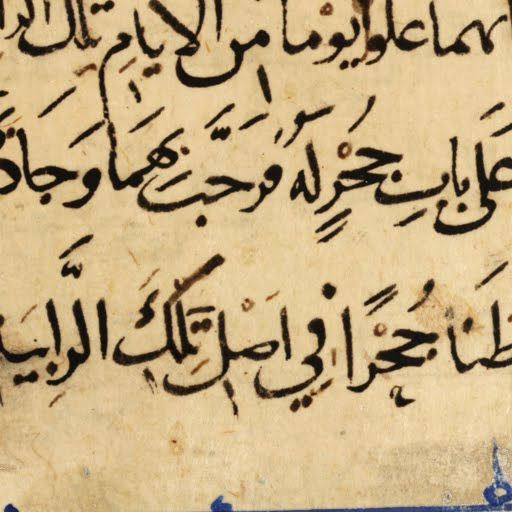 انهما علوا يوما من الايام تلك الرا
عَلَى بابِ جُحْرٍ لَهُ فرَحَّبَ بِهِمَا وَجَاد
طَنَا جُحْرًا فِي اَصْلِ تِلْكَ الرَّابِيَة